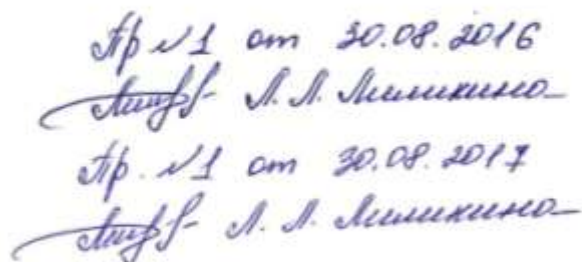 Пр №1 от 30.08.2016
Л. Л. Миликина
Пр. №1 от 30.08.2017
Л. Л. Миликина